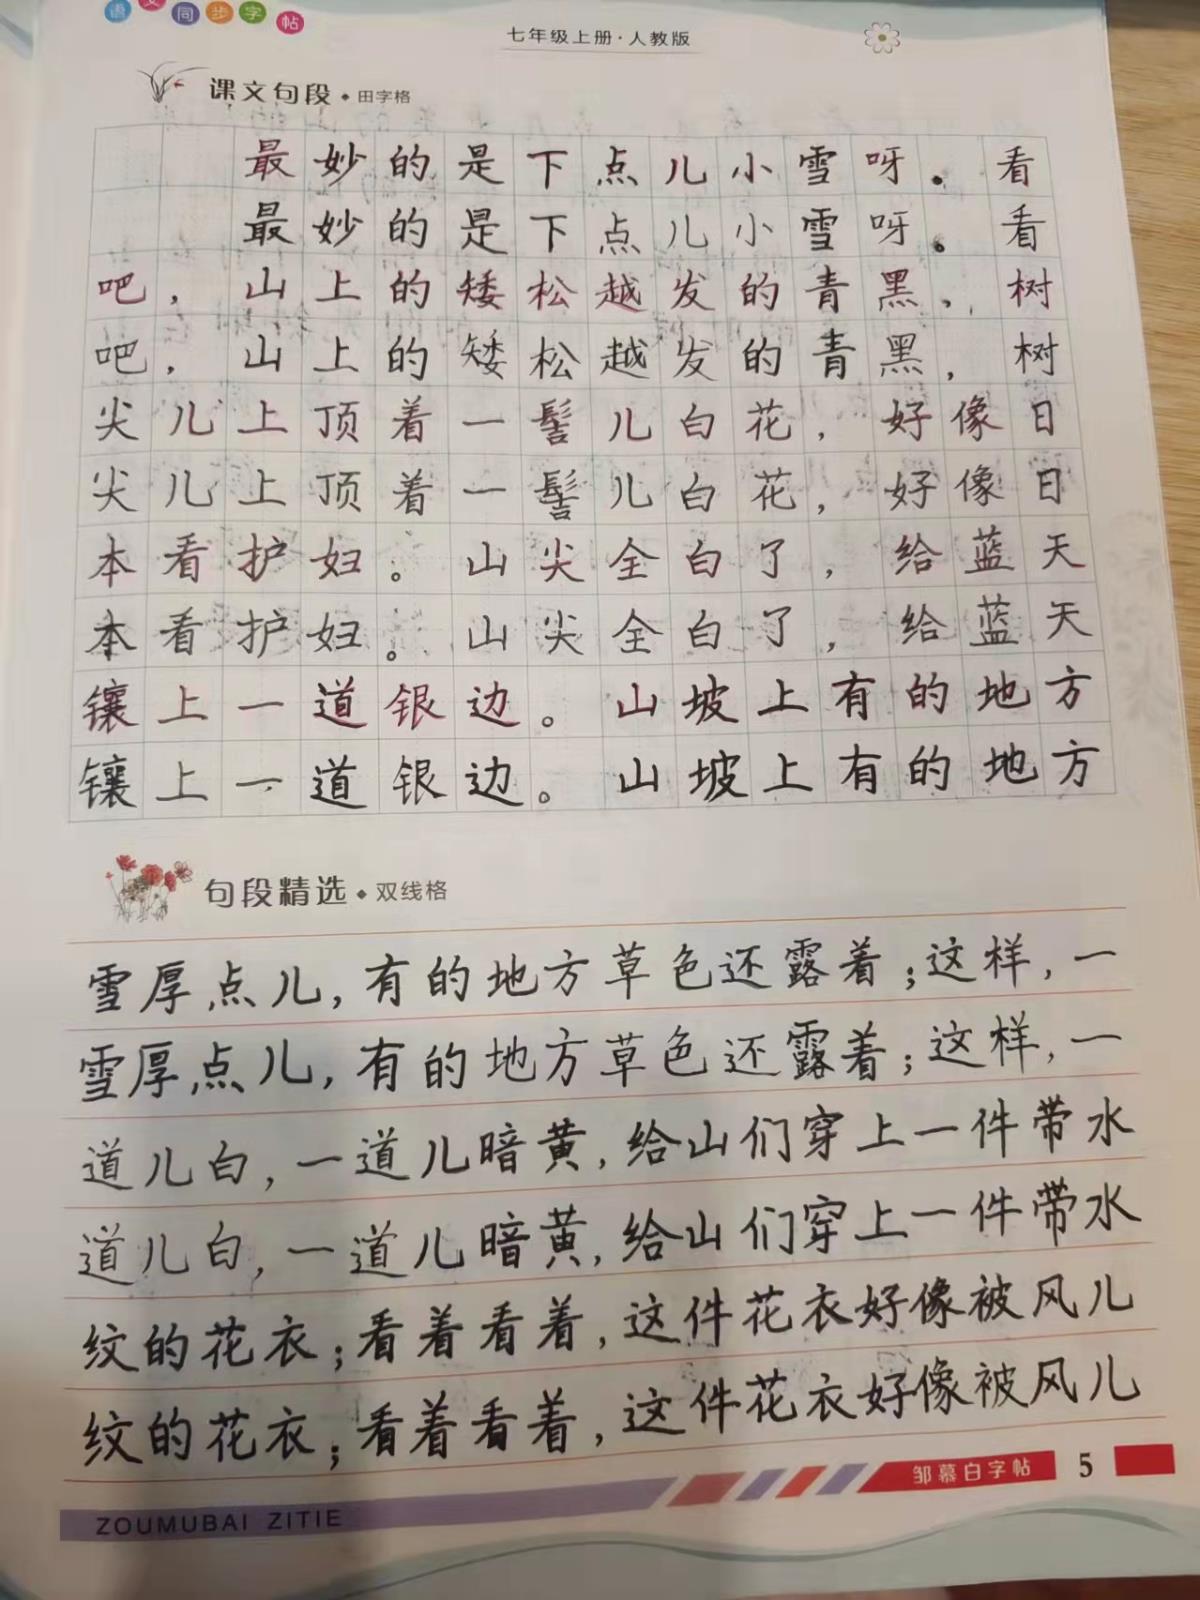 语文同步字帖
七年级上册·人教版
课文句段·田字格
最妙的是下点儿小雪呀。看
最妙的是下点儿小雪呀。看
吧，山上的矮松越发的青黑，树
吧，山上的矮松越发的青黑，树
尖儿上顶着一髻儿白花，好像日
尖儿上顶着一髻儿白花，好像日
本看护妇。山尖全白了，给蓝天
本看护妇。山尖全白了，给蓝天
镶上一道银边。山坡上有的地方
镶上一道银边。山坡上有的地方
句段精选·双线格
雪厚点儿，有的地方草色还露着；这样，一
雪厚点儿，有的地方草色还露着；这样，一
道儿白，一道儿暗黄，给山们穿上一件带水
道儿白，一道儿暗黄，给山们穿上一件带水
纹的花衣；看着看着，这件花衣好像被风儿
纹的花衣；看着看着，这件花衣好像被风儿
邹慕白字帖 5
ZOUMUBAI ZITIE